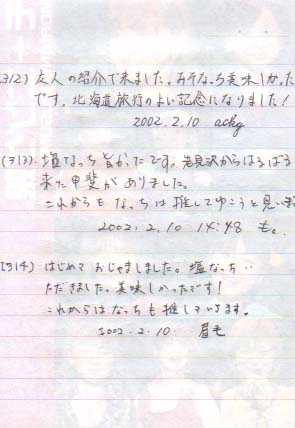 (312) 友人の紹介で来ました。みそなっち美味しかった
です。北海道旅行のよい記念になりました!
2002.2.10 ackg
(313) 塩なっち旨かたです。岩見沢からはるばる
来た甲斐がありました。
これからもなっちは推してゆこうと思います
2002.2.10 14:48 も。
(314) はじめておじゃましました。塩なっちい
ただきました。美味しかったです!
これからはなっちも推していきます。
2002.2.10. 眉毛